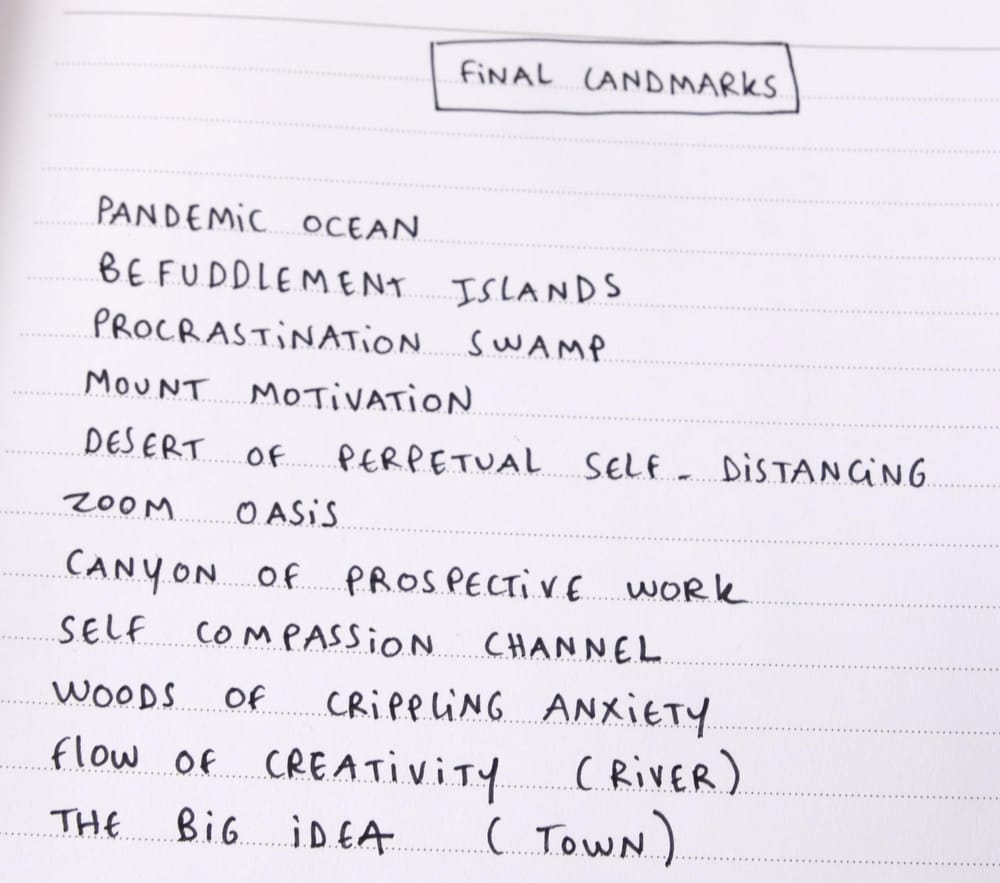 FINAL LANDMARKS
PANDEMIC OCEAN
BEFUDDLEMENT ISLANDS
PROCRASTINATION SWAMP
MOUNT MOTIVATION
DESERT OF PERPETUAL SELF-DISTANCING
ZOOM OASIS
CANYON OF PROSPECTIVE WORK
SELF COMPASSION CHANNEL
WOODS OF CRIPPLING ANXIETY
FLOW OF CREATIVITY (RIVER)
THE BIG IDEA (TOWN)